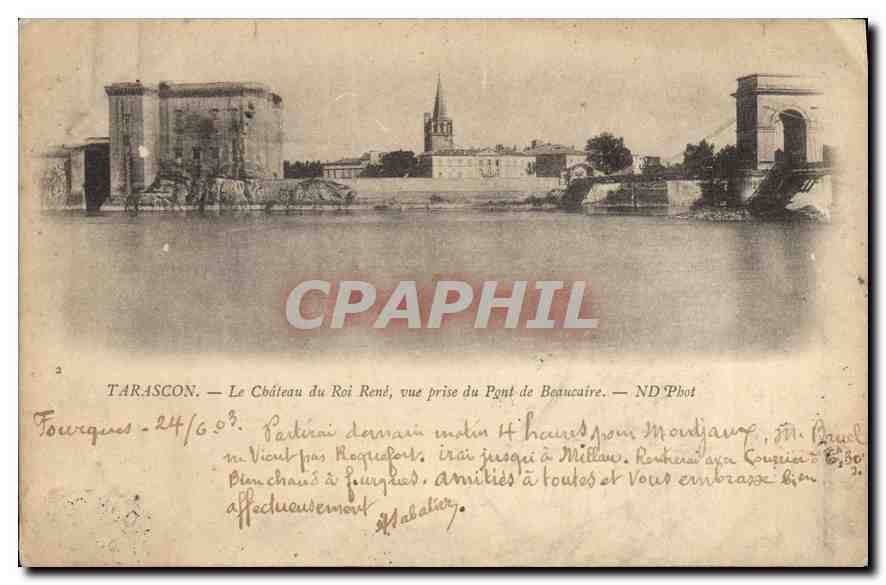 CPAPHIL
2
TARASCON. — Le Château du Roi René, vue prise du Pont de Beaucaire. — ND Phot
Fourques - 24/6 03. Partirai demain matin 4 heures pour Montjaux, M. Bruel
ne Vient pas Roquefort. irai jusqu'à Millau. Rentrerai avec Courrier à 6,30
Bien chaud à fourques. amitiés à toutes et Vous embrasse bien
affectueusement
ASabatier